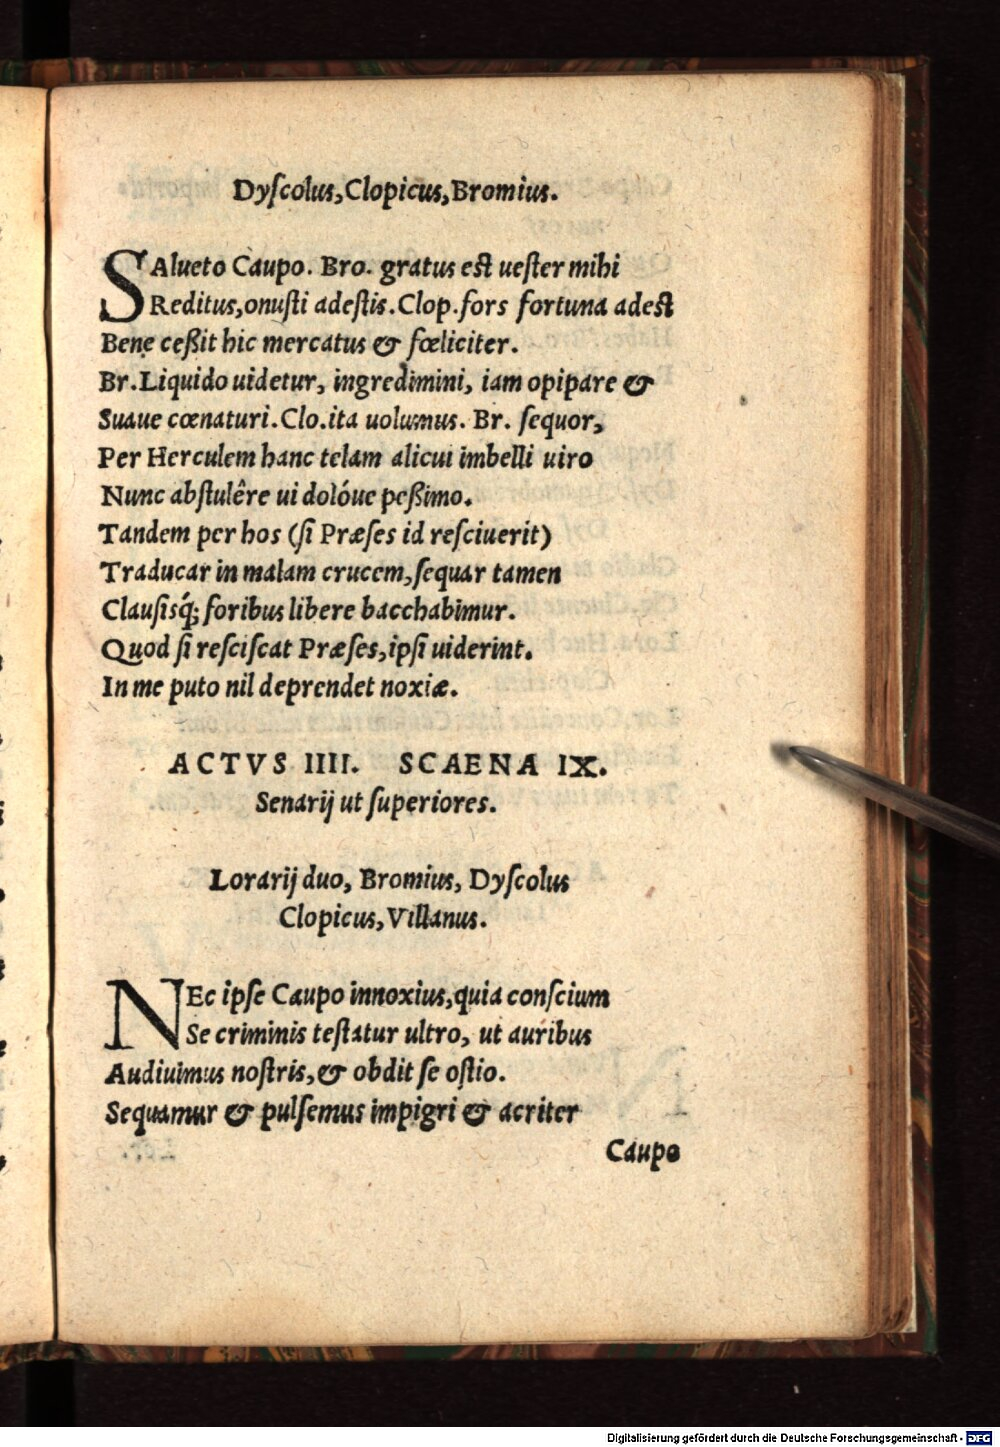 Dyſcolus,Clopicus,Bromius.
SAlueto Caupo. Bro. gratus est ueſter mihi
Reditus,onuſti adeſtis.Clop.fors fortuna adest
Bene ceßit hic mercatus & fœliciter.
Br.Liquido uidetur, ingredimini, iam opipare &
Suaue cœnaturi.Clo.ita uolumus. Br. ſequor,
Per Herculem hanc telam alicui imbelli uiro
Nunc abſtulêre ui dolóue peßimo.
Tandem per hos (ſi Præſes id reſciuerit)
Traducar in malam crucem,ſequar tamen
Clauſisq́; foribus libere bacchabimur.
Quod ſi reſciſcat Præſes,ipſi uiderint.
In me puto nil deprendet noxiæ.
ACTVS IIII. SCAENA IX.
Senarij ut ſuperiores.
Lorarij duo, Bromius, Dyſcolus
Clopicus,Villanus.
NEc ipſe Caupo innoxius,quia conſcium
Se criminis teſtatur ultro, ut auribus
Audiuimus noſtris,& obdit ſe oſtio.
Sequamur & pulſemus impigri & acriter
Caupo
Digitalisierung gefördert durch die Deutsche Forschungsgemeinschaft - DFG